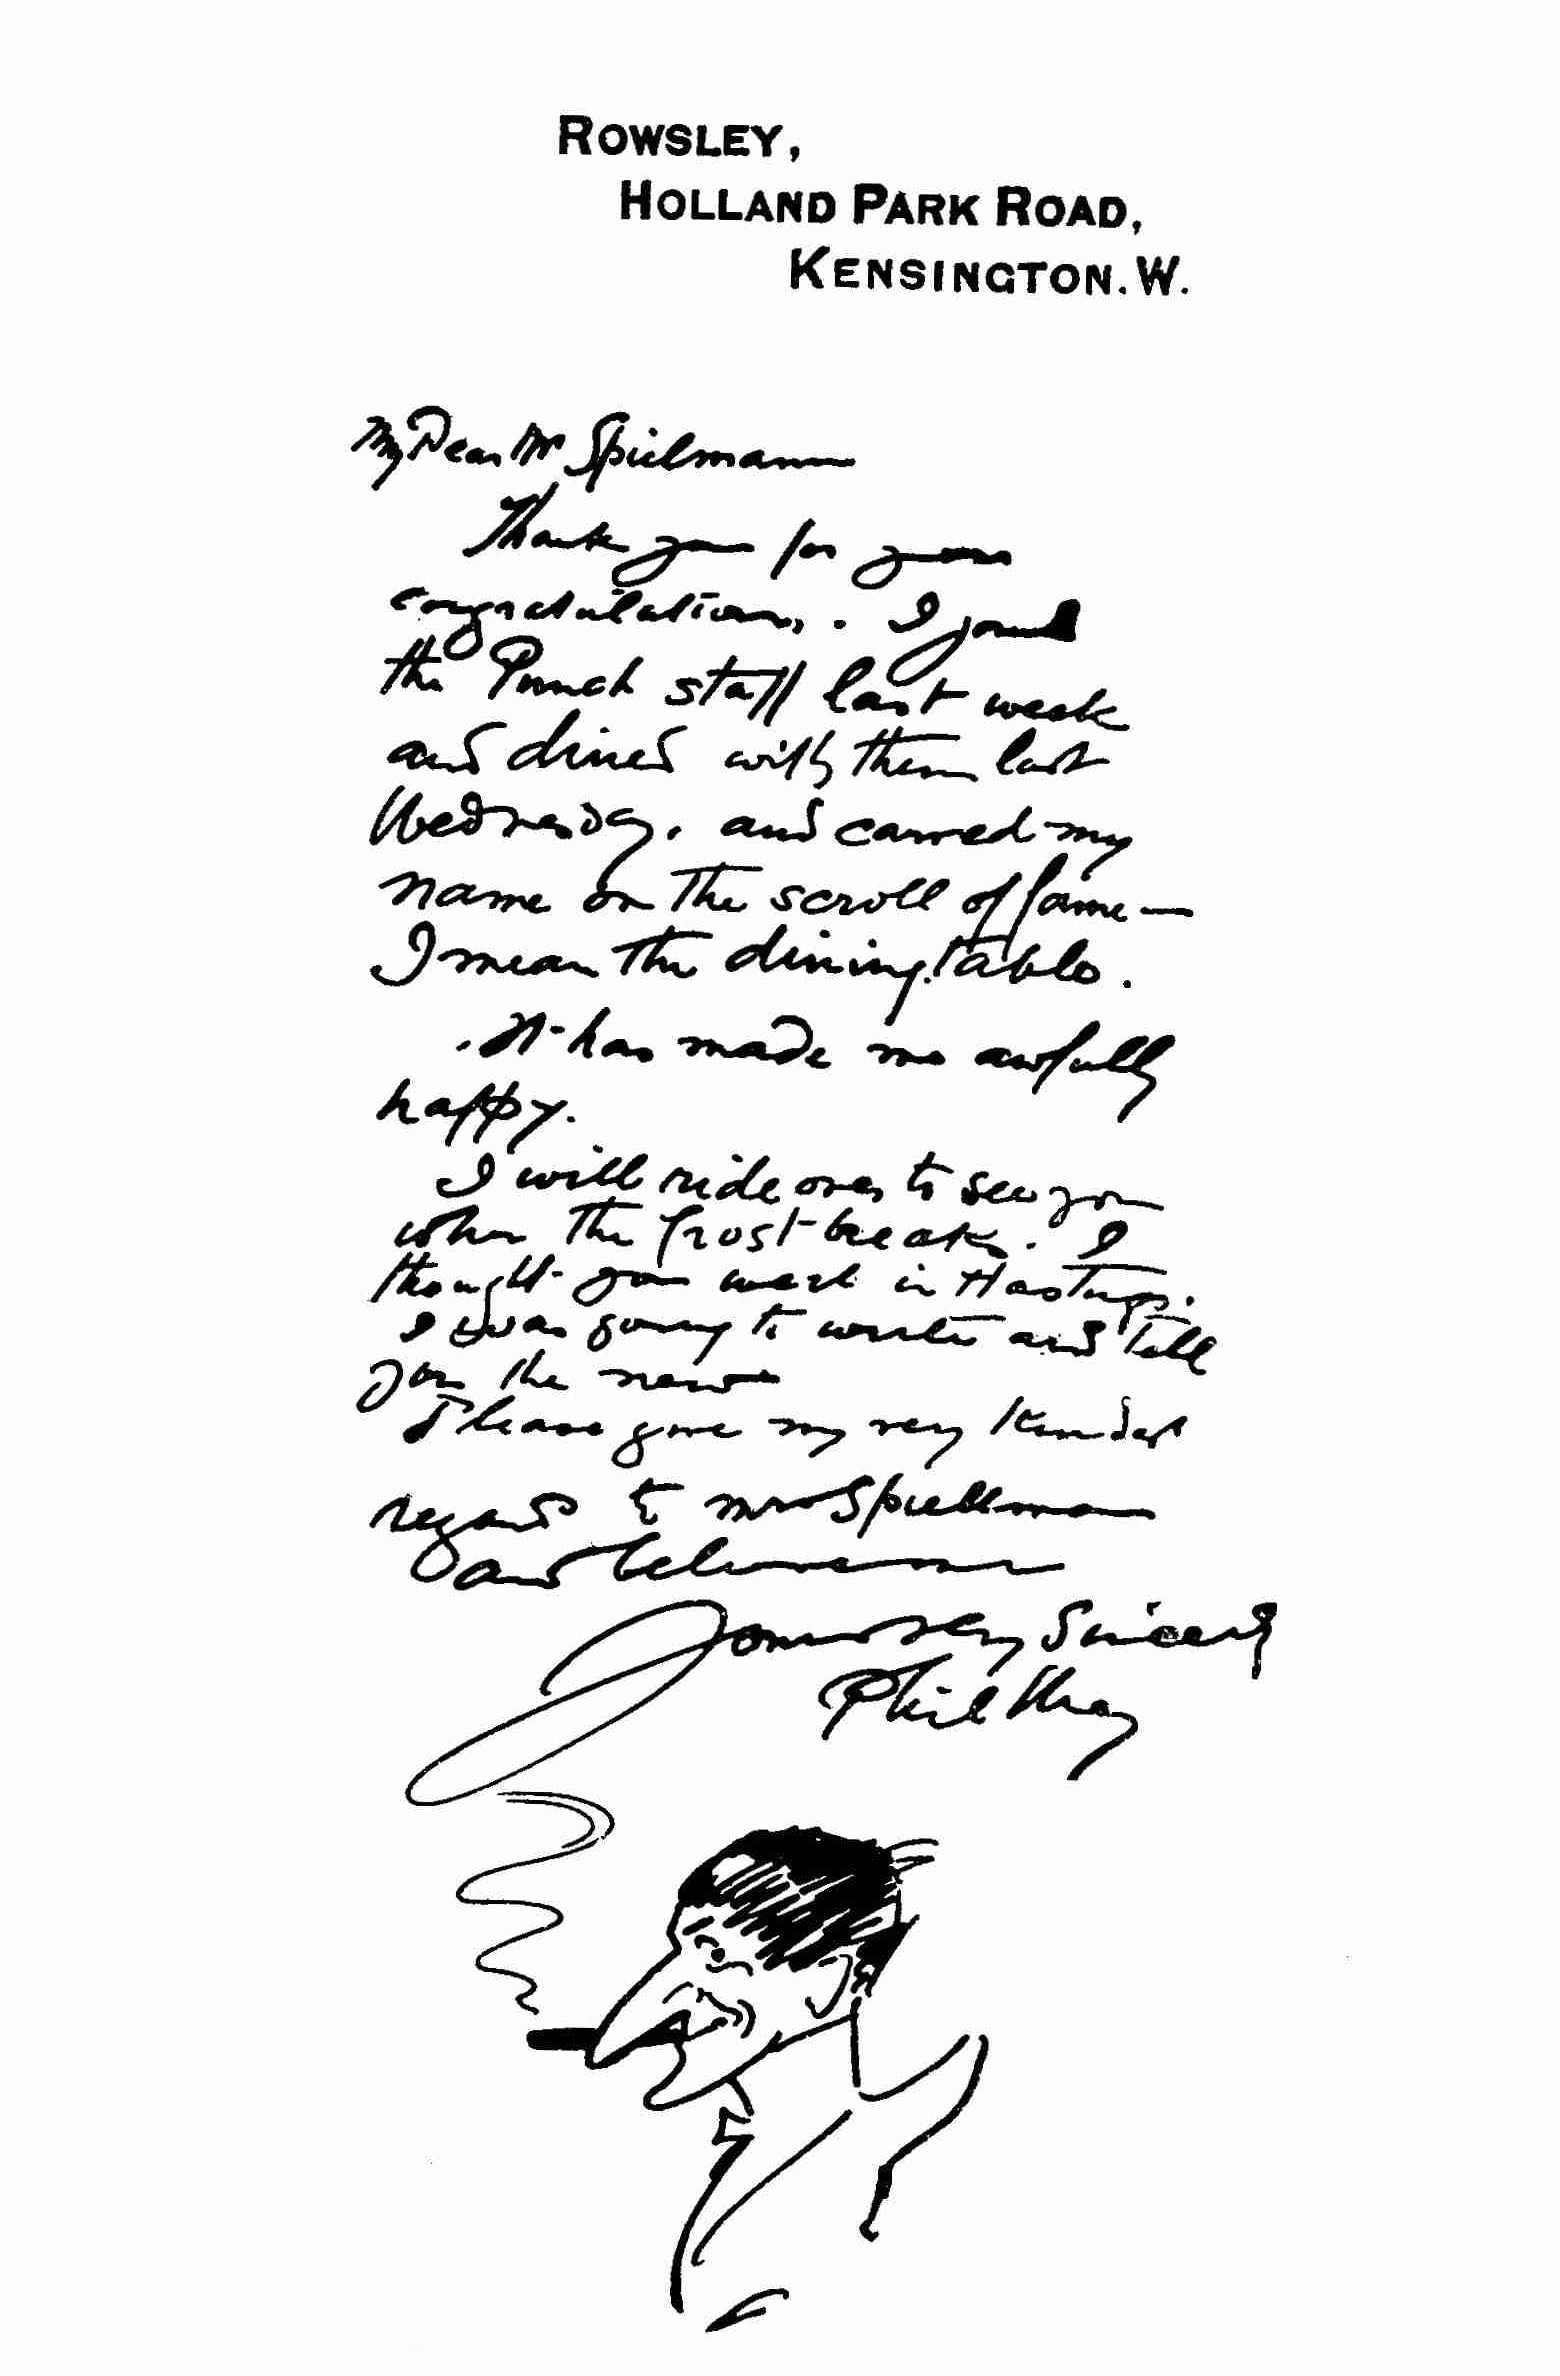 ROWSLEY,
HOLLAND PARK ROAD,
KENSINGTON. W.
My Dear Mr Spielmann
Thank you for your
congratulations. I joined
the Punch staff last week
and dined with them last
Wednesday. and carved my
name on the scroll of fame—
I mean the dining table.
It has made me awfully
happy.
I will ride over to see you
when the frost breaks. I
thought you were in Hastings.
I was going to write and tell
you the news
Please give my very kindest
regards to Mrs Spiellmann
and believe me
Yours very Sincerely
Phil May